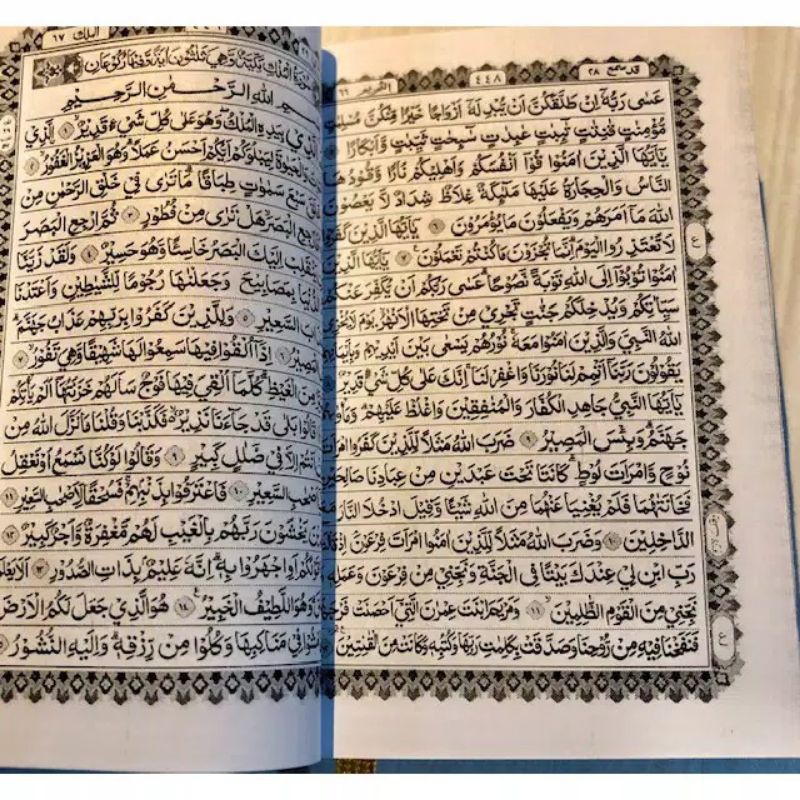 قد سمع ٢٨
٤٤٨
التحريم ٦٦
عَسٰى رَبُّهٗٓ اِنْ طَلَّقَكُنَّ اَنْ يُّبْدِلَهٗٓ اَزْوَاجًا خَيْرًا مِّنْكُنَّ مُسْلِمٰتٍ
مُّؤْمِنٰتٍ قٰنِتٰتٍ تٰٓئِبٰتٍ عٰبِدٰتٍ سٰٓئِحٰتٍ ثَيِّبٰتٍ وَّاَبْكَارًا
يٰٓاَيُّهَا الَّذِيْنَ اٰمَنُوْا قُوْٓا اَنْفُسَكُمْ وَاَهْلِيْكُمْ نَارًا وَّقُوْدُهَا
النَّاسُ وَالْحِجَارَةُ عَلَيْهَا مَلٰٓئِكَةٌ غِلَاظٌ شِدَادٌ لَّا يَعْصُوْنَ
اللّٰهَ مَآ اَمَرَهُمْ وَيَفْعَلُوْنَ مَا يُؤْمَرُوْنَ ٦ يٰٓاَيُّهَا الَّذِيْنَ كَفَرُوْا
لَا تَعْتَذِرُوا الْيَوْمَ اِنَّمَا تُجْزَوْنَ مَا كُنْتُمْ تَعْمَلُوْنَ ٧ يٰٓاَيُّهَا الَّذِيْنَ
اٰمَنُوْا تُوْبُوْٓا اِلَى اللّٰهِ تَوْبَةً نَّصُوْحًا عَسٰى رَبُّكُمْ اَنْ يُّكَفِّرَ عَنْكُمْ
سَيِّاٰتِكُمْ وَيُدْخِلَكُمْ جَنّٰتٍ تَجْرِيْ مِنْ تَحْتِهَا الْاَنْهٰرُ يَوْمَ لَا يُخْزِى
اللّٰهُ النَّبِيَّ وَالَّذِيْنَ اٰمَنُوْا مَعَهٗ نُوْرُهُمْ يَسْعٰى بَيْنَ اَيْدِيْهِمْ وَبِاَيْمَانِهِمْ
يَقُوْلُوْنَ رَبَّنَآ اَتْمِمْ لَنَا نُوْرَنَا وَاغْفِرْ لَنَا اِنَّكَ عَلٰى كُلِّ شَيْءٍ قَدِيْرٌ
يٰٓاَيُّهَا النَّبِيُّ جَاهِدِ الْكُفَّارَ وَالْمُنٰفِقِيْنَ وَاغْلُظْ عَلَيْهِمْ وَمَأْوٰىهُمْ
جَهَنَّمُ وَبِئْسَ الْمَصِيْرُ ٩ ضَرَبَ اللّٰهُ مَثَلًا لِّلَّذِيْنَ كَفَرُوا امْرَاَتَ
نُوْحٍ وَّامْرَاَتَ لُوْطٍ كَانَتَا تَحْتَ عَبْدَيْنِ مِنْ عِبَادِنَا صَالِحَيْنِ
فَخَانَتٰهُمَا فَلَمْ يُغْنِيَا عَنْهُمَا مِنَ اللّٰهِ شَيْئًا وَّقِيْلَ ادْخُلَا النَّارَ مَعَ
الدّٰخِلِيْنَ ١٠ وَضَرَبَ اللّٰهُ مَثَلًا لِّلَّذِيْنَ اٰمَنُوا امْرَاَتَ فِرْعَوْنَ اِذْ قَالَتْ
رَبِّ ابْنِ لِيْ عِنْدَكَ بَيْتًا فِى الْجَنَّةِ وَنَجِّنِيْ مِنْ فِرْعَوْنَ وَعَمَلِهٖ
وَنَجِّنِيْ مِنَ الْقَوْمِ الظّٰلِمِيْنَ ١١ وَمَرْيَمَ ابْنَتَ عِمْرٰنَ الَّتِيْٓ اَحْصَنَتْ فَرْجَهَا
فَنَفَخْنَا فِيْهِ مِنْ رُّوْحِنَا وَصَدَّقَتْ بِكَلِمٰتِ رَبِّهَا وَكُتُبِهٖ وَكَانَتْ مِنَ الْقٰنِتِيْنَ
الملك ٦٧
سُوْرَةُ الْمُلْكِ مَكِّيَّةٌ وَّهِيَ ثَلٰثُوْنَ اٰيَةً وَّفِيْهَا رُكُوْعَانِ
بِسْمِ اللّٰهِ الرَّحْمٰنِ الرَّحِيْمِ
الَّذِيْ بِيَدِهِ الْمُلْكُ وَهُوَ عَلٰى كُلِّ شَيْءٍ قَدِيْرٌ ١ الَّذِيْ
وَالْحَيٰوةَ لِيَبْلُوَكُمْ اَيُّكُمْ اَحْسَنُ عَمَلًا وَهُوَ الْعَزِيْزُ الْغَفُوْرُ ٢
سَبْعَ سَمٰوٰتٍ طِبَاقًا مَا تَرٰى فِيْ خَلْقِ الرَّحْمٰنِ مِنْ
فَارْجِعِ الْبَصَرَ هَلْ تَرٰى مِنْ فُطُوْرٍ ٣ ثُمَّ ارْجِعِ الْبَصَرَ
يَنْقَلِبْ اِلَيْكَ الْبَصَرُ خَاسِئًا وَّهُوَ حَسِيْرٌ ٤ وَلَقَدْ زَيَّنَّا
الدُّنْيَا بِمَصَابِيْحَ وَجَعَلْنٰهَا رُجُوْمًا لِّلشَّيٰطِيْنِ وَاَعْتَدْنَا
السَّعِيْرِ ٥ وَلِلَّذِيْنَ كَفَرُوْا بِرَبِّهِمْ عَذَابُ جَهَنَّمَ
الْمَصِيْرُ ٦ اِذَآ اُلْقُوْا فِيْهَا سَمِعُوْا لَهَا شَهِيْقًا وَّهِيَ تَفُوْرُ ٧
مِنَ الْغَيْظِ كُلَّمَآ اُلْقِيَ فِيْهَا فَوْجٌ سَاَلَهُمْ خَزَنَتُهَآ اَلَمْ يَأْتِكُمْ
قَالُوْا بَلٰى قَدْ جَآءَنَا نَذِيْرٌ فَكَذَّبْنَا وَقُلْنَا مَا نَزَّلَ اللّٰهُ مِنْ
اَنْتُمْ اِلَّا فِيْ ضَلٰلٍ كَبِيْرٍ ٩ وَقَالُوْا لَوْ كُنَّا نَسْمَعُ اَوْ نَعْقِلُ
اَصْحٰبِ السَّعِيْرِ ١٠ فَاعْتَرَفُوْا بِذَنْبِهِمْ فَسُحْقًا لِّاَصْحٰبِ السَّعِيْرِ ١١
يَخْشَوْنَ رَبَّهُمْ بِالْغَيْبِ لَهُمْ مَّغْفِرَةٌ وَّاَجْرٌ كَبِيْرٌ ١٢
قَوْلَكُمْ اَوِ اجْهَرُوْا بِهٖ اِنَّهٗ عَلِيْمٌ بِذَاتِ الصُّدُوْرِ ١٣ اَلَا يَعْلَمُ
وَهُوَ اللَّطِيْفُ الْخَبِيْرُ ١٤ هُوَ الَّذِيْ جَعَلَ لَكُمُ الْاَرْضَ
فَامْشُوْا فِيْ مَنَاكِبِهَا وَكُلُوْا مِنْ رِّزْقِهٖ وَاِلَيْهِ النُّشُوْرُ ١٥